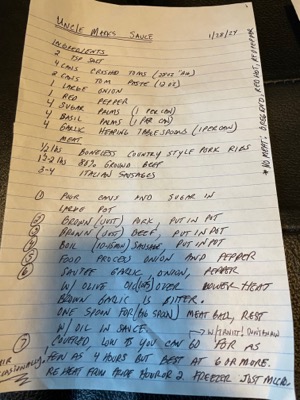 UNCLE MARKS SAUCE
1/28/24
INGREDIENTS
2 TSP SALT
4 CANS CRUSHED TOMS (28 OZ
2 CANS TOM PASTE (12 OZ)
1 LARGE ONION
1 RED PEPPER
4 SUGAR PALMS (1 PER CAN)
4 BASIL PALMS (1 PER CAN)
4 GARLIC HEAPING TABLESPOONS (1 PER CAN)
MEAT
1 1/2 LBS BONELESS COUNTRY STYLE PORK RIBS
1 1/2-2 LBS 88% GROUND BEEF
3-4 ITALIAN SAUSAGES
① POUR CANS AND SUGAR IN
LARGE POT
② BROWN PORK, PUT IN POT
③ BROWN BEEF, PUT IN POT
④ BOIL SAUSAGE, PUT IN POT
⑤ FOOD PROCESS ONION AND PEPPER
⑥ SAUTEE GARLIC, ONION, PEPPER
W/ OLIVE OIL OVER LOWER HEAT
BROWN GARLIC IS BITTER.
ONE SPOON FOR MEAT BAG, REST
W/ OIL IN SAUCE
⑦ COVERED LOW YOU CAN GO FOR AS
FEW AS 4 HOURS BUT BEST AT 6 OR MORE.
REHEAT FROM FRIDGE HOUR OR 2 FREEZER JUST MICRO
* NO MEAT: OREGANO, RED HOT, PEPPER